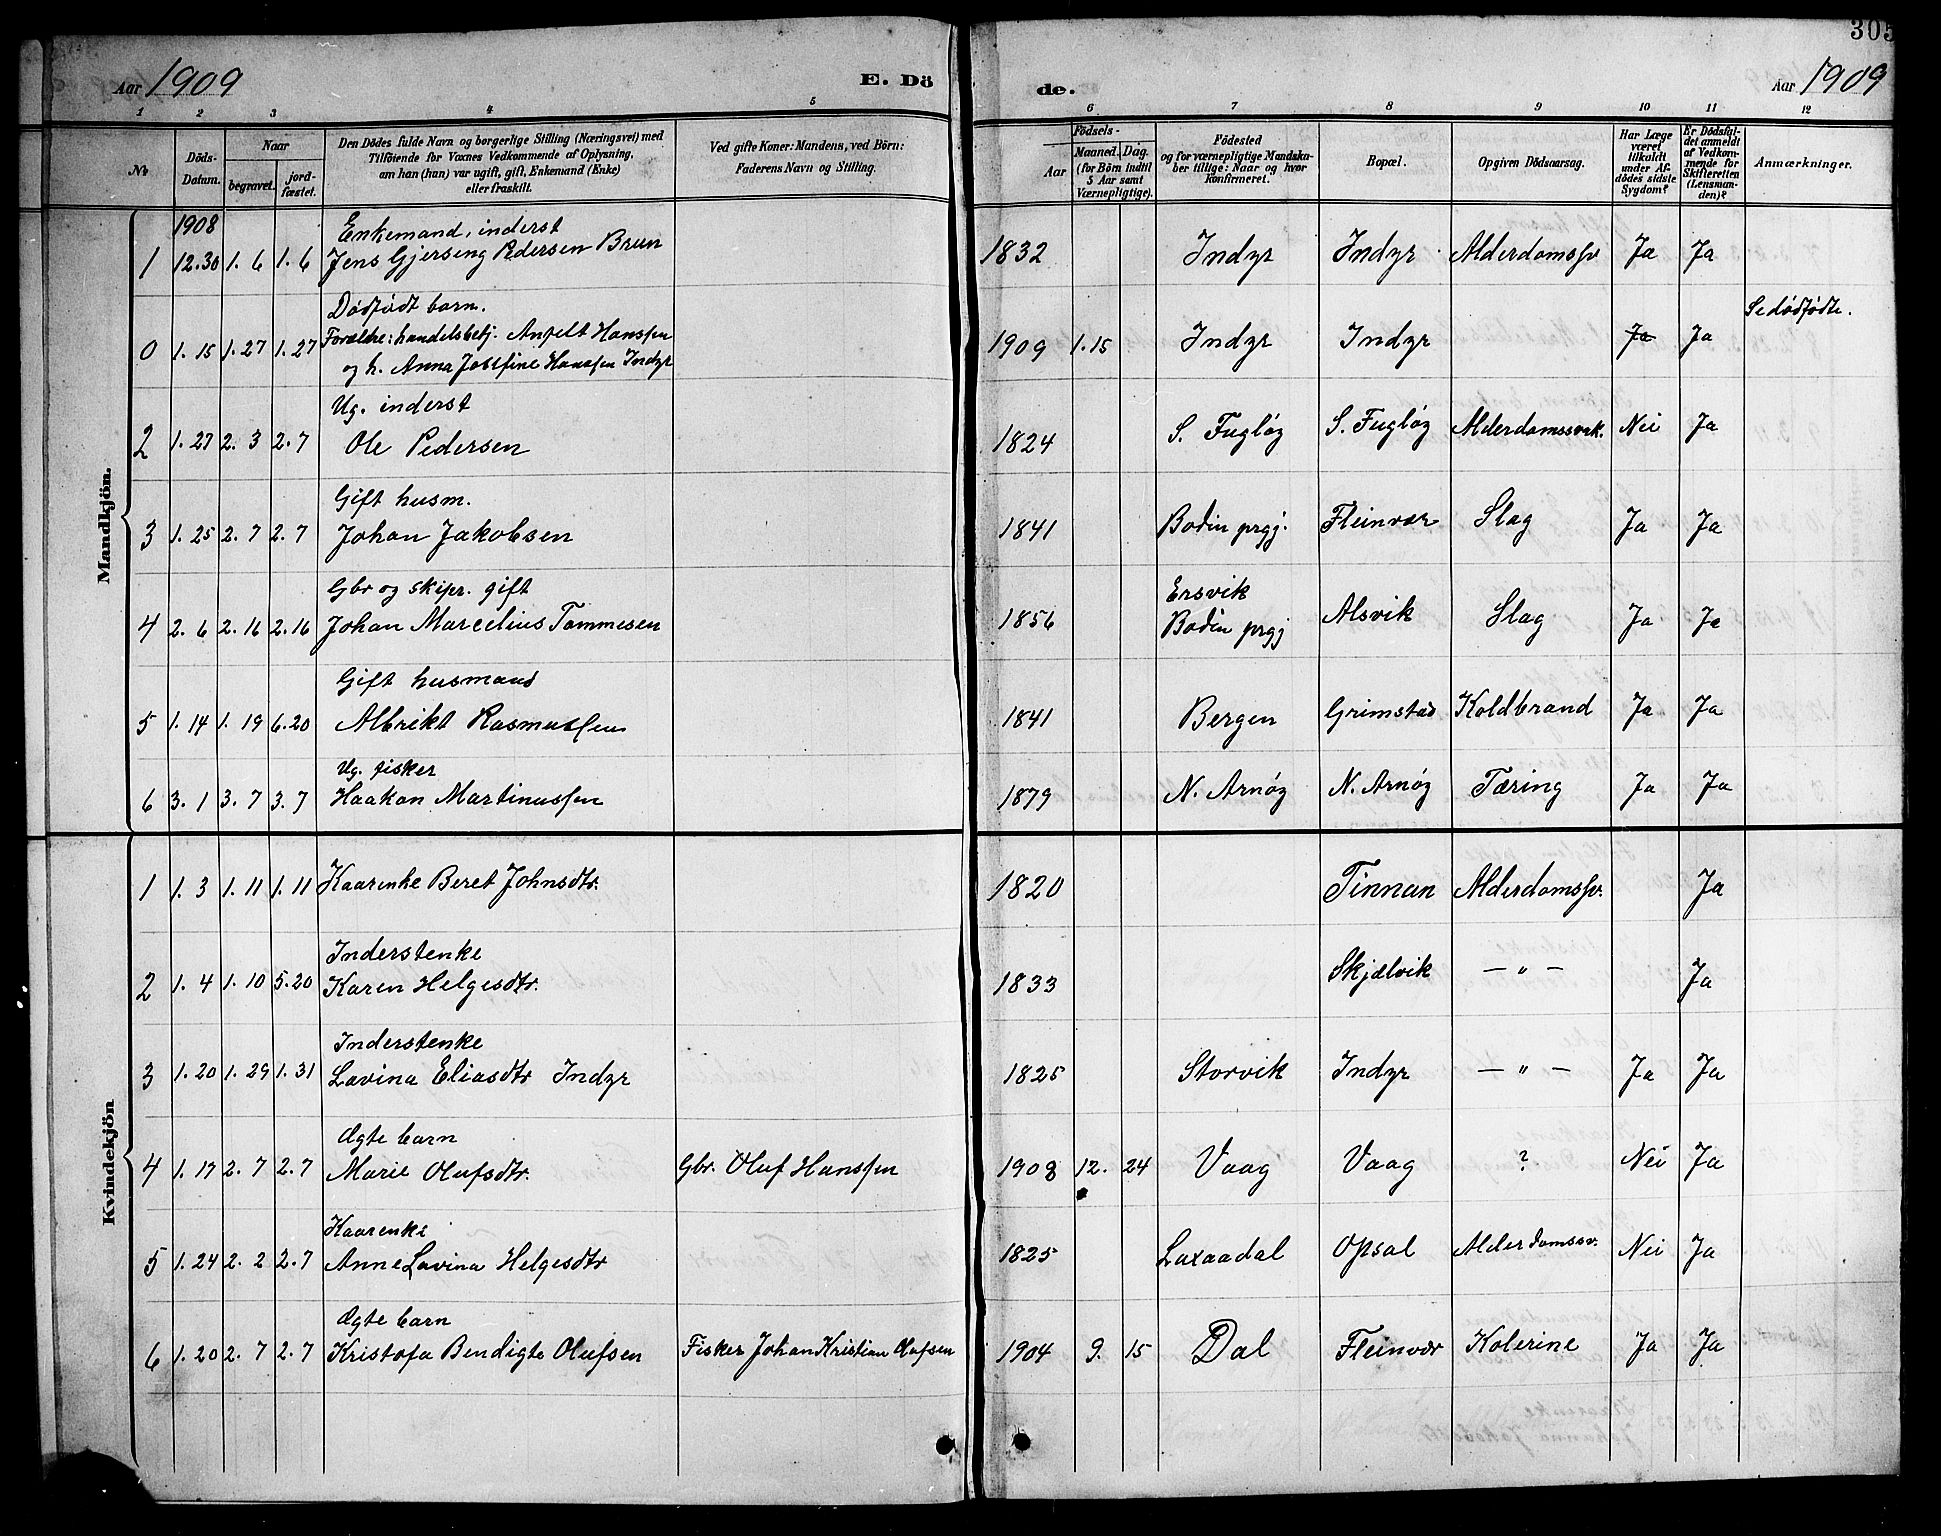 305
Aar 1909 E. Dö de. Aar 1909
1 2 3 4 5 6 7 8 9 10 11 12
No
Döds-
Datum.
Naar
begravet.
jord-
fæstet.
Den Dödes fulde Navn og borgerlige Stilling (Næringsvei) med
Tilföiende for Voxnes Vedkommende af Oplysning,
om han (hun) var ugift, gift, Enkemand (Enke)
eller fraskilt.
Ved gifte Koner: Mandens, ved Börn:
Faderens Navn og Stilling.
Födsels-
Aar
Maaned.
Dag.
(for Börn indtil
5 Aar samt
Værnepligtige).
Födested
og for værnepligtige Mandska-
ber tillige: Naar og hvor
konfirmeret.
Bopæl.
Opgiven Dödsaarsag.
Har Læge
været
tilkaldt
under Af-
dödes sidste
Sygdom?
Er Dödsfal-
det anmeldt
af Vedkom-
mende for
Skifteretten
(Lensman-
den)?
Anmærkninger.
Mandkjön.
1908 Enkemand, inderst
1 12.30 1. 6 1. 6 Jens Gjersing Pedersen Brun 1832 Indyr Indyr Alderdomssv Ja Ja
Dødfødt barn. Se dødfødte.
0 1. 15 1. 27 1. 27 Forældre: handelsbetj. Anfelt Hanssen 1909 1. 15 Indyr Indyr Ja Ja
og h. Anna Josefine Hanssen Indyr
Ug. inderst
2 1. 27 2. 3 2. 7 Ole Pedersen 1824 S. Fugløy S. Fugløy Alderdomssvak. Nei Ja
Gift husm.
3 1. 25 2. 7 2. 7 Johan Jakobsen 1841 Bodin prgj. Fleinvær Slag Ja Ja
Gbr og skipr. gift Ersvik
4 2. 6 2. 16 2. 16 Johan Marcelius Tommesen 1856 Bodin prgj Alsvik Slag Ja Ja
Gift husmand
5 1. 14 1. 19 6. 20 Albrikt Rasmussen 1841 Bergen Grimstad Koldbrand Ja Ja
Ug. fisker
6 3. 1 3. 7 3. 7 Haakon Martinussen 1879 N. Arnøy N. Arnøy Tæring Ja Ja
Kvindekjön
1 1. 3 1. 11 1. 11 Kaarenke Beret Johnsdtr. 1820 Finnan Alderdomssv. Ja
Inderstenke
2 1. 4 1. 10 5. 20 Karen Helgesdtr. 1833 Skjælvik — " — Ja
Inderstenke
3 1. 20 1. 29 1. 31 Lavina Eliasdtr Indyr 1825 Storvik Indyr — " — Ja Ja
Ægte barn
4 1. 17 2. 7 2. 7 Marie Olufsdtr. Gbr. Oluf Hanssen 1908 12. 24 Vaag Vaag ? Nei Ja
Kaarenke
5 1. 24 2. 2 2. 7 Anne Lavina Helgesdtr 1825 Laxaadal Opsal Alderdomssv. Nei Ja
Ægte barn
6 1. 20 2. 7 2. 7 Kristofa Bendigte Olufsen Fisker Johan Kristian Olufsen 1904 9. 15 Dal Fleinvær Kolerine Ja Ja